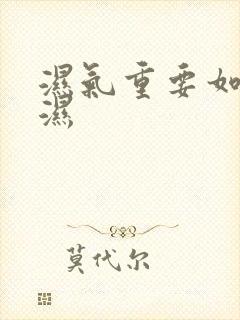 濕氣重要如
濕
莫代尔